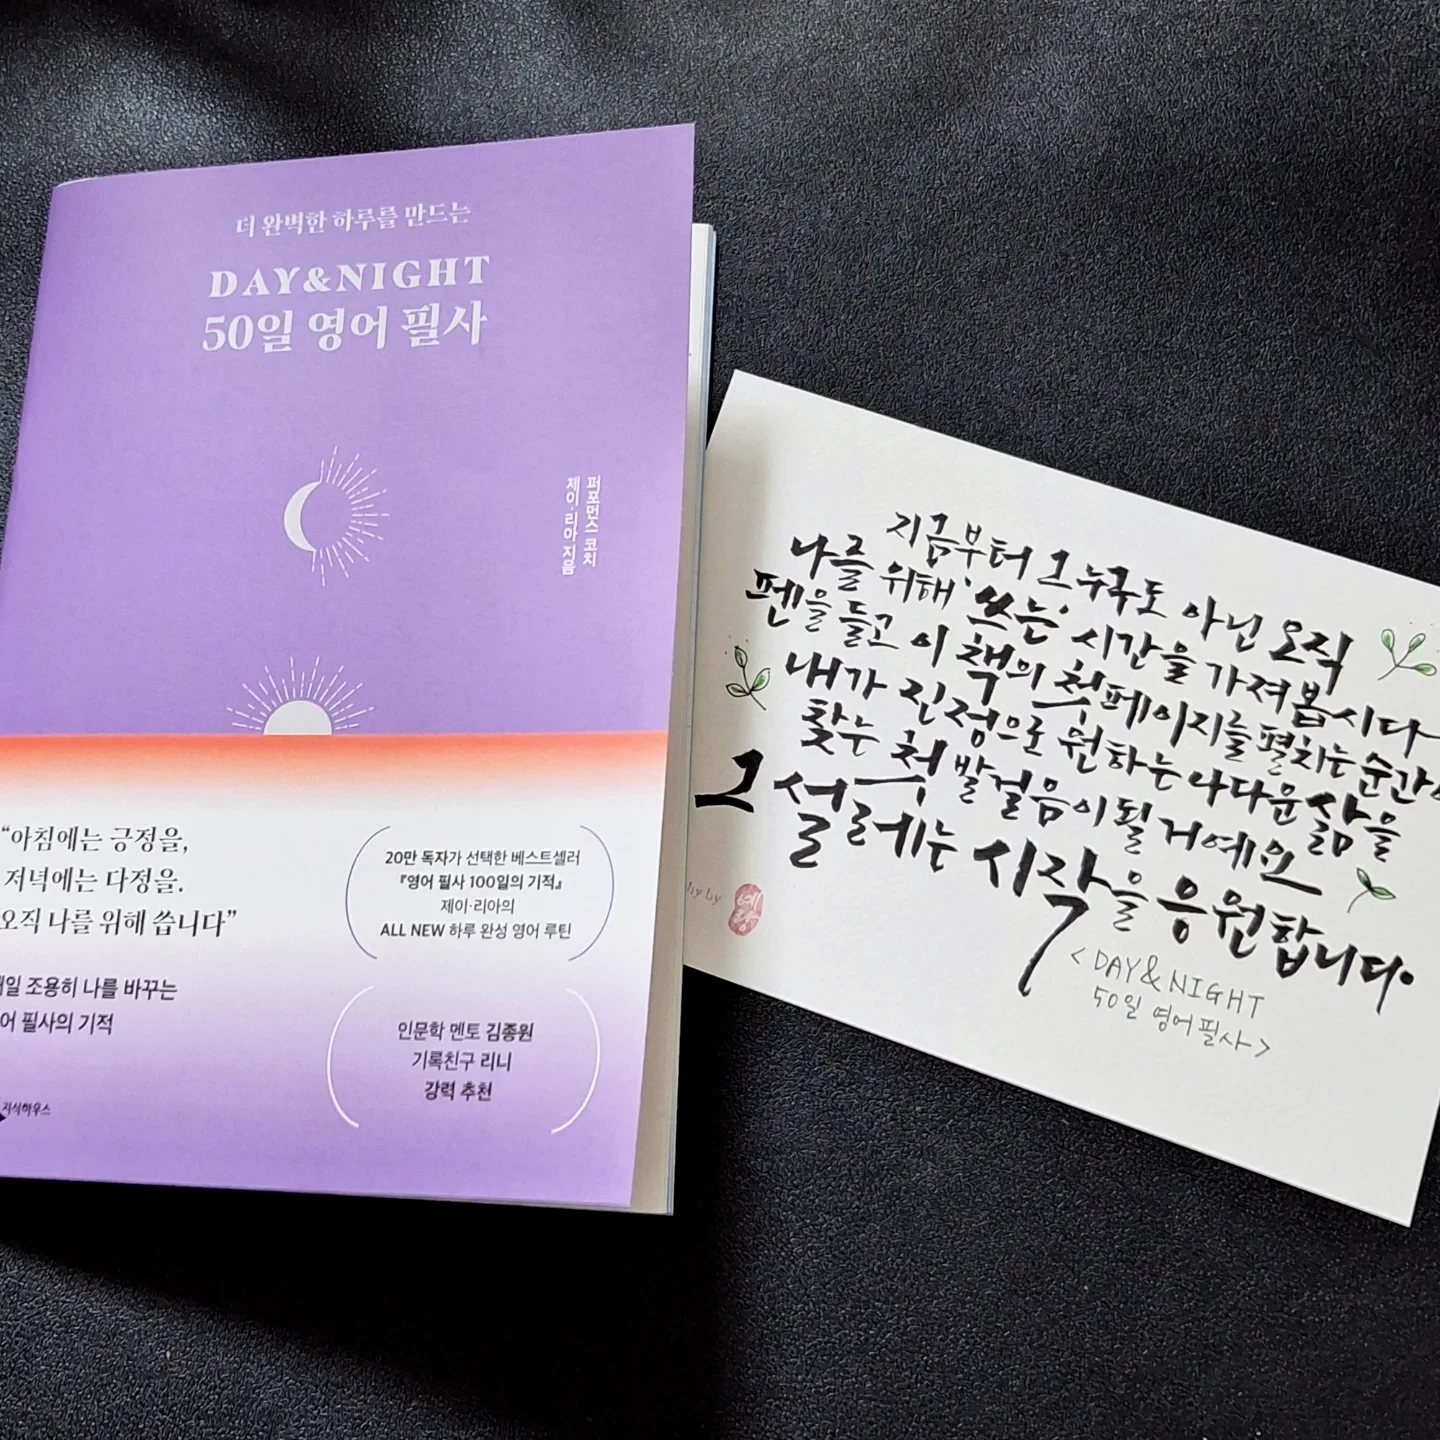 더 완벽한 하루를 만드는
DAY&NIGHT
50일 영어 필사
퍼포먼스 코치
제이·리아 지음
“아침에는 긍정을,
저녁에는 다정을.
오직 나를 위해 씁니다”
조용히 나를 바꾸는
필사의 기적
지식하우스
20만 독자가 선택한 베스트셀러
『영어 필사 100일의 기적』
제이·리아의
ALL NEW 하루 완성 영어 루틴
인문학 멘토 김종원
기록친구 리니
강력 추천
지금부터 그 누구도 아닌 오직
나를 위해 '쓰는' 시간을 가져봅시다
펜을 들고 이 책의 첫 페이지를 펼치는 순간
내가 진정으로 원하는 나다운 삶을
찾는 첫 발걸음이 될 거예요
그 설레는 시작을 응원합니다.
by
예랑
<DAY&NIGHT
50일 영어필사>